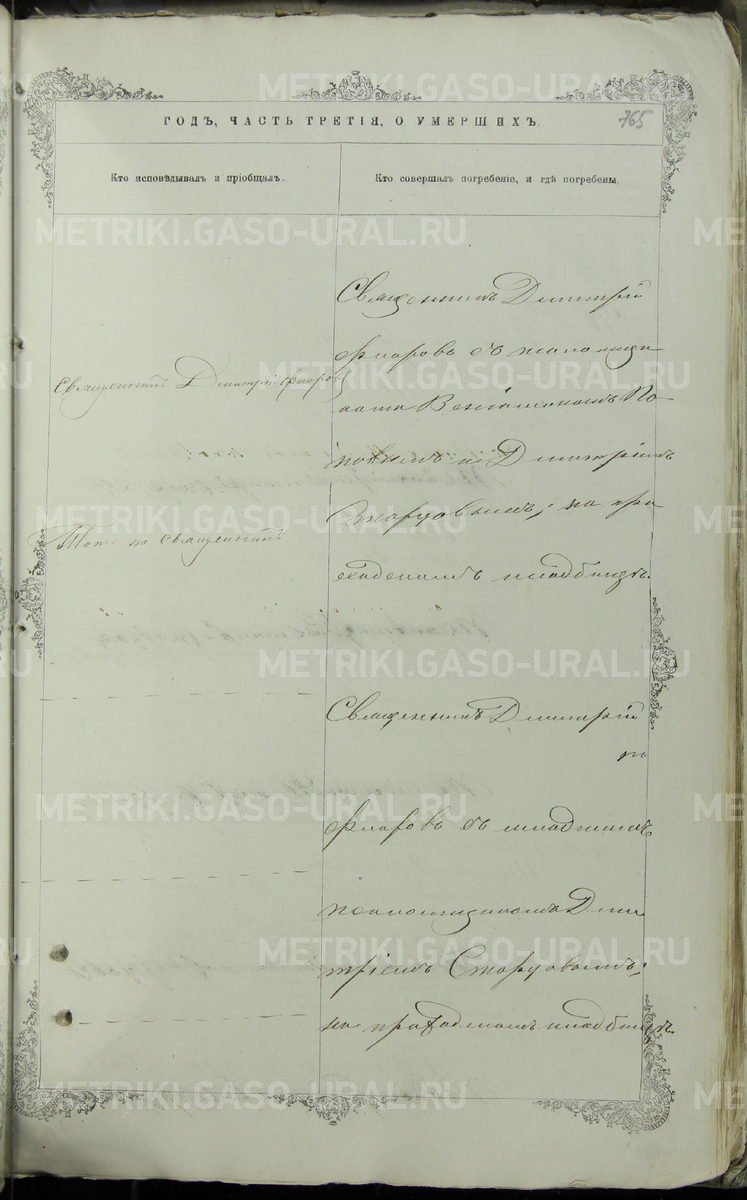 METRIKI.GASO-URAL.RU
765
ГОДЪ, ЧАСТЬ ТРЕТІЯ, О УМЕРШИХЪ.
Кто исповѣдывалъ и пріобщалъ.
Кто совершалъ погребеніе, и гдѣ погребены.
Священникъ Димитрій Флоровъ
Тотъ же священникъ
Священникъ Димитрій
Флоровъ съ псаломщи
ками Веніаминомъ По
повымъ и Димитріемъ
на при
ходскомъ кладбищѣ.
Священникъ Димитрій
Флоровъ съ младшимъ
псаломщикомъ Дми
тріемъ Старцовымъ;
на приходскомъ кладбищѣ.